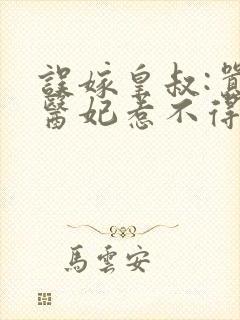 誤嫁皇叔:囂
醫妃惹不得
馬雲安